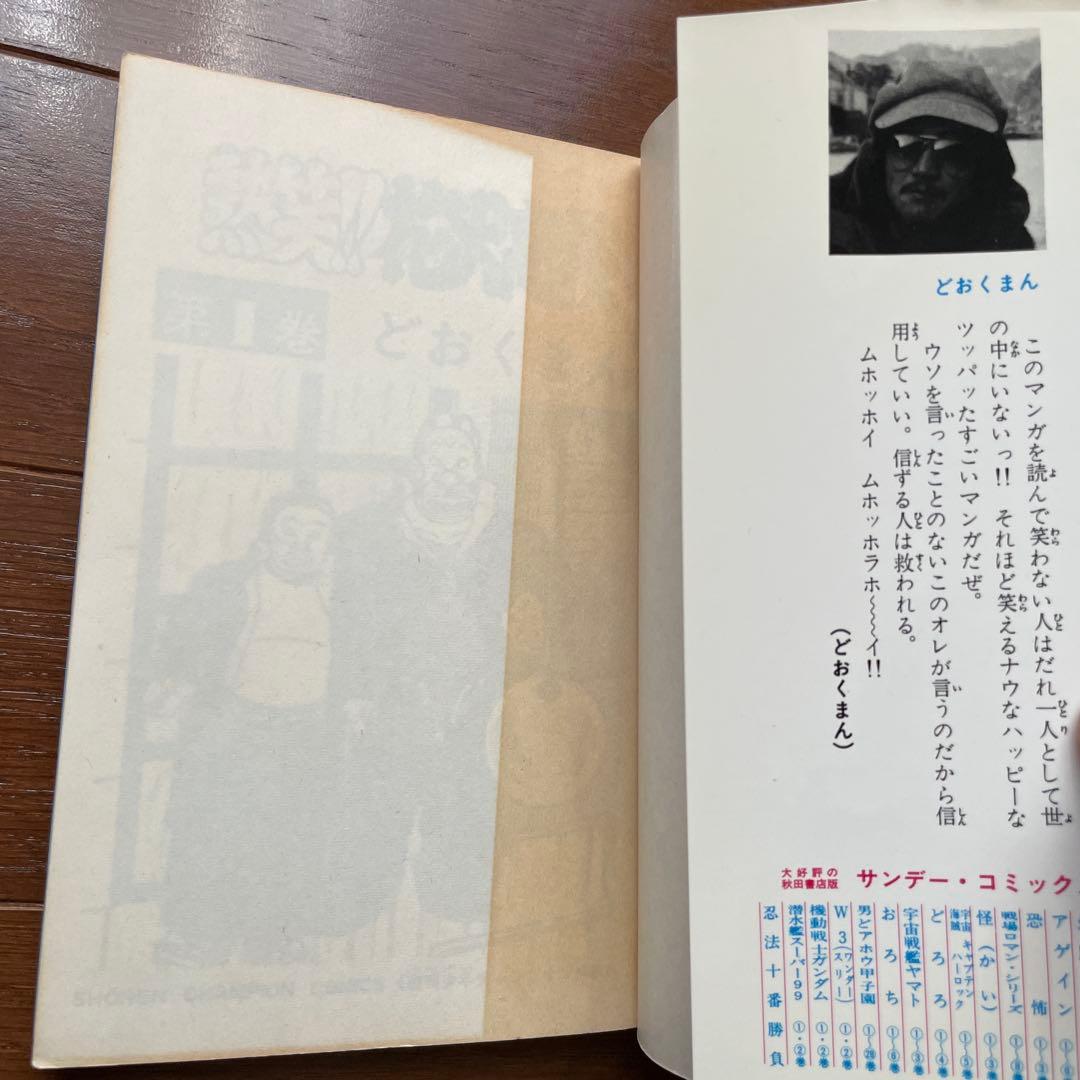 どおくまん
このマンガを読んで笑わない人はだれ一人として世
の中にいないっ!! それほど笑えるナウなハッピーな
ツッパッたすごいマンガだぜ。
ウソを言ったことのないこのオレが言うのだから信
用していい。信ずる人は救われる。
ムホッホイ ムホッホラホ〜〜〜イ!!
(どおくまん)
大好評の
秋田書店版
サンデー・コミック
アゲイン
恐怖
戦場ロマン・シリーズ
怪(かい)
宇宙海賊キャプテンハーロック ①〜⑤巻
どろろ ①〜④巻
宇宙戦艦ヤマト ①〜③巻
おろち ①〜⑥巻
男どアホウ甲子園 ①〜㉘巻
W3(ワンダースリー) ①・②巻
機動戦士ガンダム ①・②巻
潜水艦スーパー99 ①・②巻
忍法十番勝負
第1巻
どおく